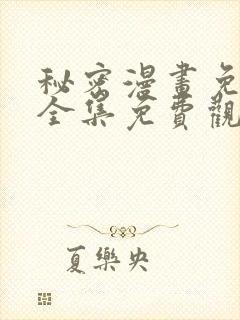 秘密漫畫免
全集免費觀
夏樂央